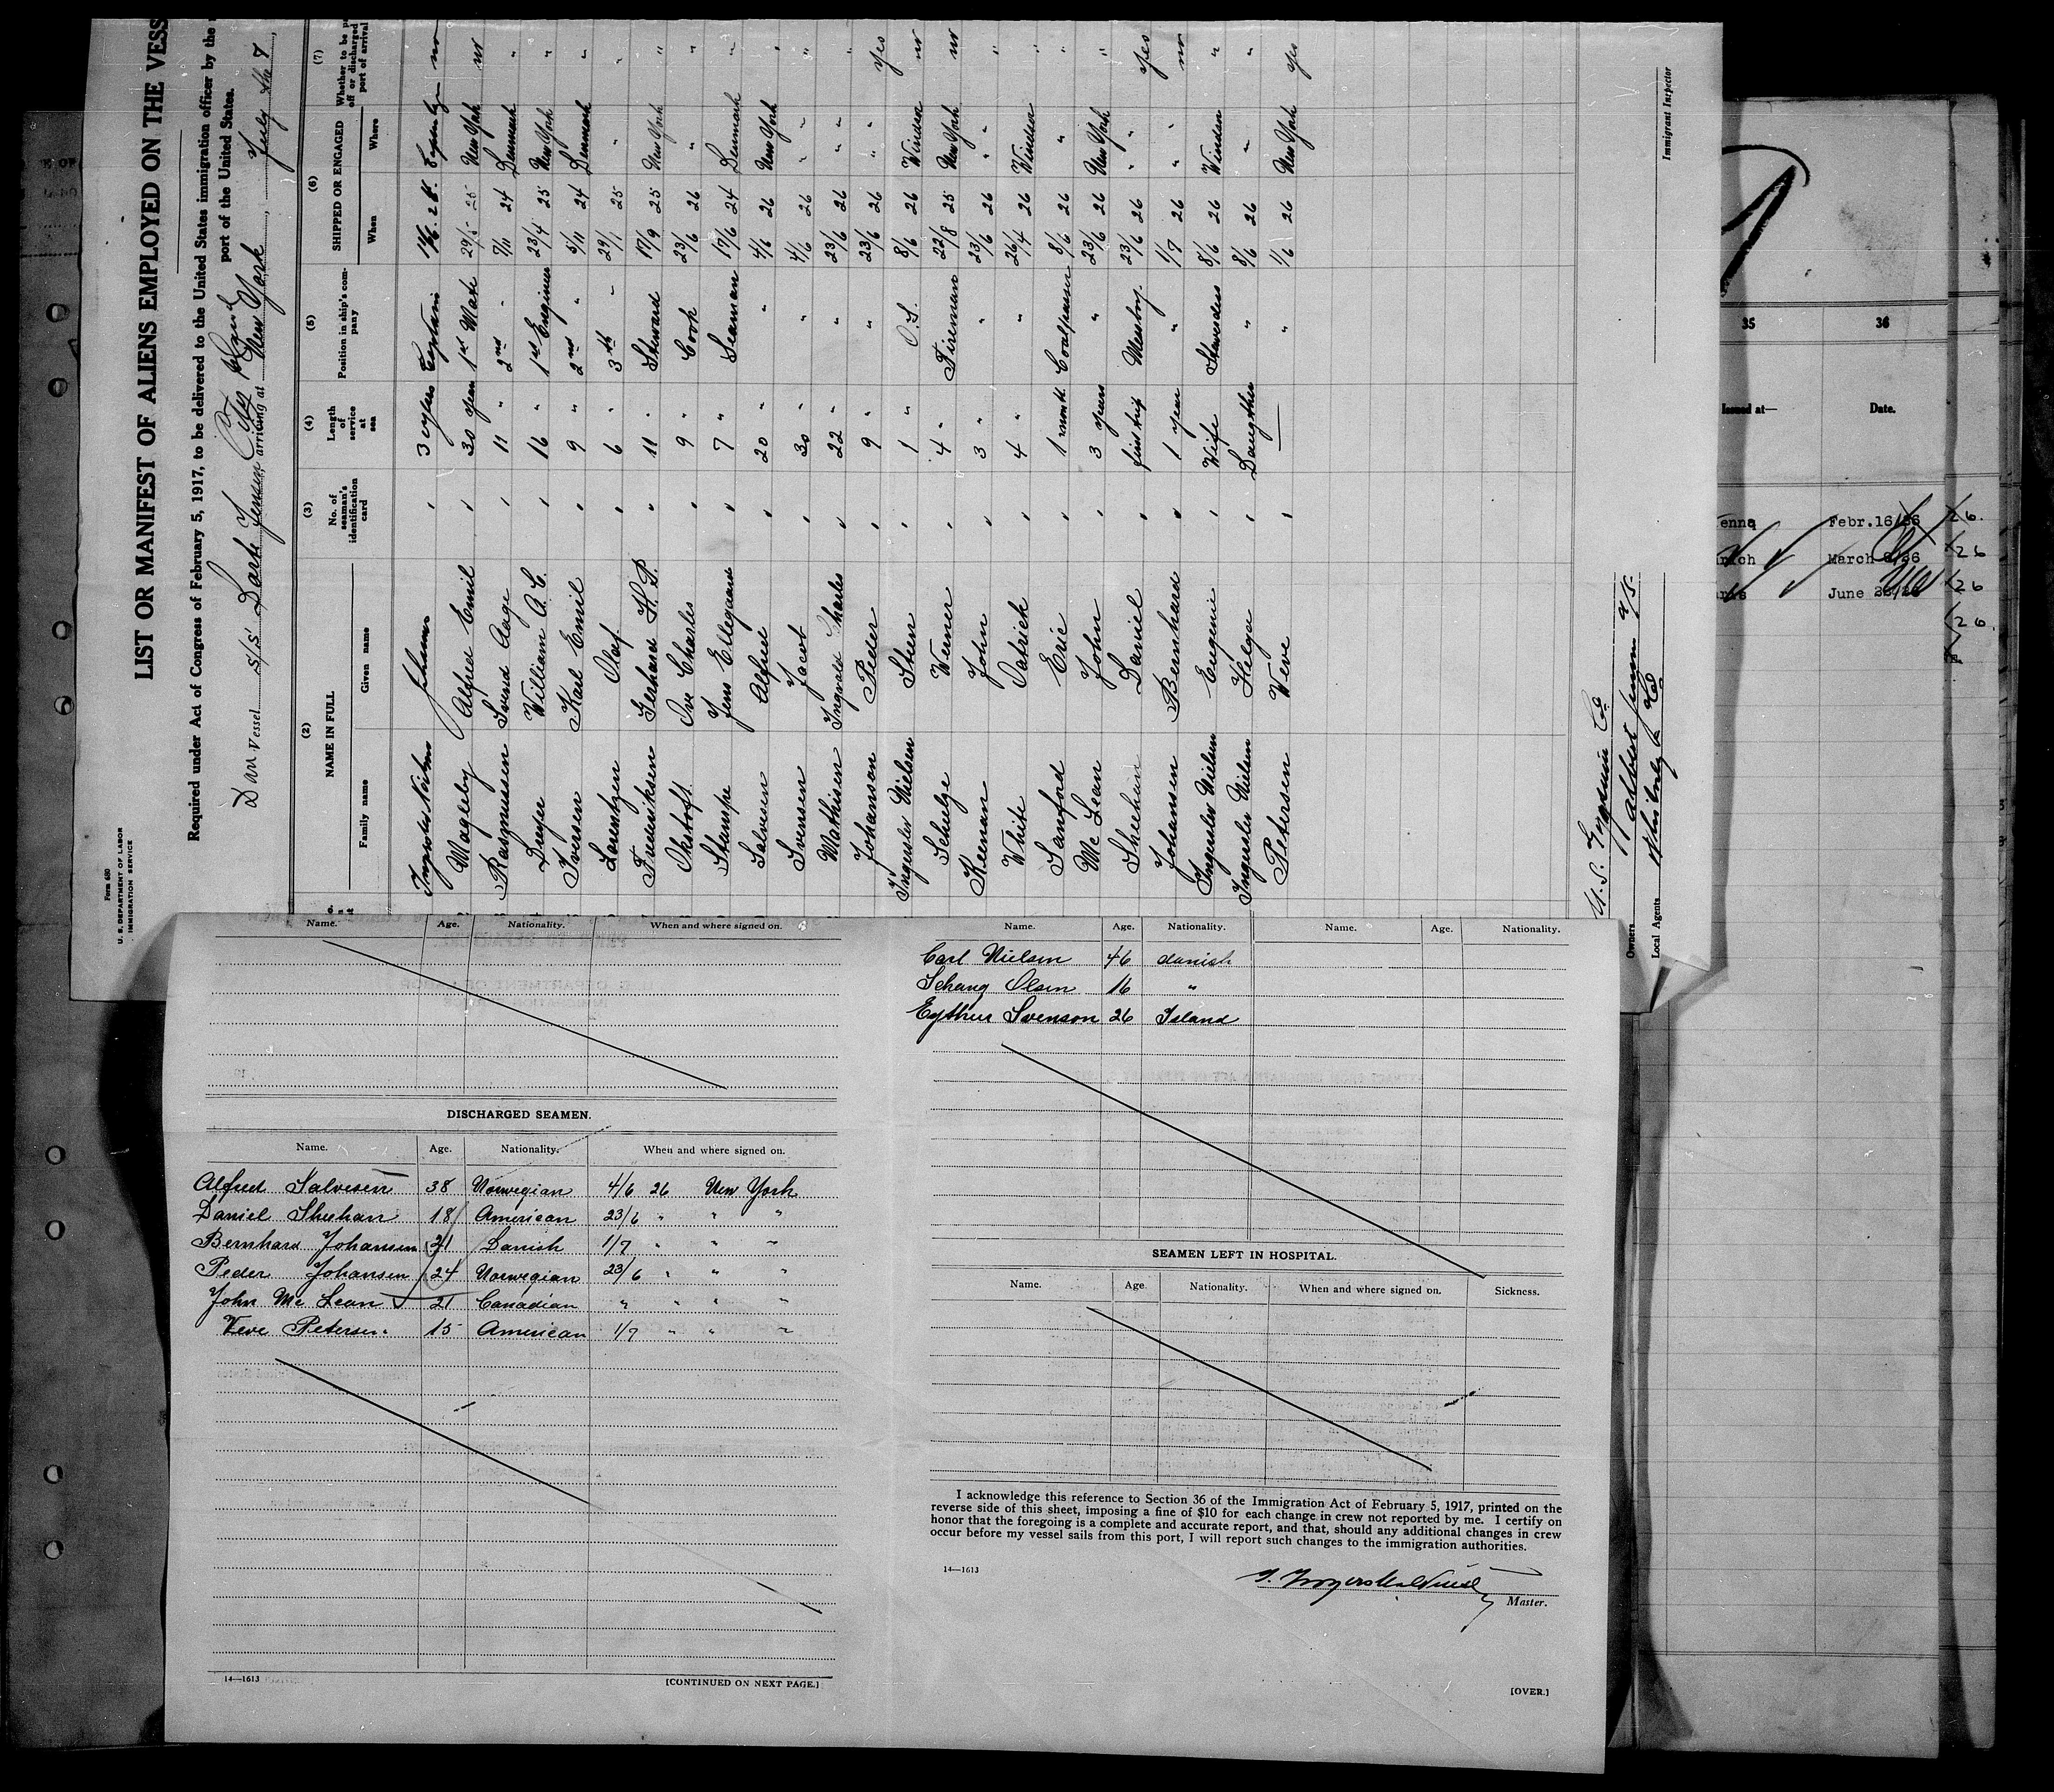 Form 680
U. S. DEPARTMENT OF LABOR
IMMIGRATION SERVICE
LIST OR MANIFEST OF ALIENS EMPLOYED ON THE VESS
Required under Act of Congress of February 5, 1917, to be delivered to the United States immigration officer by the
port of the United States.
Vessel S/S arriving at New York, July the 7,
(2) (3) (4) (5) (6) (7)
NAME IN FULL
Family name Given name
No. of seaman's identification card
Length of service at sea
Position in ship's company
SHIPPED OR ENGAGED
When Where
Whether to be off or discharged port of arrival
Johannes 3 Captain
Magleby Alfred Emil 30 years 1st Mate 29/5 25 New York no
Rasmussen Svend Aage 11 " 2nd " 7/11 24 Denmark "
William A. C. 16 " 1st Engineer 23/4 25 New York "
Iversen Karl Emil 9 " 2nd " 5/11 24 Denmark "
Lorentzen Olaf 6 " 3th " 29/1 25 " "
Frederiksen Gerhard H. P. 11 " Steward 17/9 25 New York "
Ove Charles 9 " Cook 23/6 26 " "
Stampe Jens Ellegaard 7 " Seaman 17/6 24 Denmark "
Salvesen Alfred 20 " " 4/6 26 New York "
Svensen Jacob 30 " " 4/6 26 " "
Mathisen Ingvald Charles 22 " " 23/6 26 " "
Johanson Peder 9 " " 23/6 26 " yes
Nielsen Sten 1 " O. S. 8/6 26 Windsor no
Schulze Werner 4 " Fireman 22/8 25 New York no
Keenan John 3 " " 23/6 26 " "
White Patrick 4 " " 26/4 26 Windsor "
Sanford Eric 1 month Coalpasser 8/6 26 " "
Mc Lean John 3 years " 23/6 26 New York "
Sheehan Daniel first trip Messboy. 23/6 26 " yes
Johansen Bernhard 1 year " 1/7 26 " no
Nielsen Eugenie Wife Stewardess 8/6 26 Windsor "
Nielsen Helga Daughter " 8/6 26 " "
Petersen Veve — " 1/6 26 New York yes
Owners
Local Agents
Immigrant Inspector
35 36
Issued at— Date.
Febr.16/26
March 8/26
June
Name. Age. Nationality. When and where signed on.
DISCHARGED SEAMEN.
Name. Age. Nationality. When and where signed on.
Alfred Salvesen 38 Norwegian 4/6 26 New York
Daniel Sheehan 18 American 23/6 " " "
Bernhard Johansen 21 Danish 1/7 " " "
Peder Johansen 24 Norwegian 23/6 " " "
John Mc Lean 21 Canadian " " " "
Veve Petersen 15 American 1/7 " " "
14—1613
[CONTINUED ON NEXT PAGE.]
Name. Age. Nationality. Name. Age. Nationality.
Carl Nielsen 46 danish
Schang Olsen 16 "
Eythur Svenson 26 Island
SEAMEN LEFT IN HOSPITAL.
Name. Age. Nationality. When and where signed on. Sickness.
I acknowledge this reference to Section 36 of the Immigration Act of February 5, 1917, printed on the
reverse side of this sheet, imposing a fine of $10 for each change in crew not reported by me. I certify on
honor that the foregoing is a complete and accurate report, and that, should any additional changes in crew
occur before my vessel sails from this port, I will report such changes to the immigration authorities.
14—1613
Master.
[OVER.]